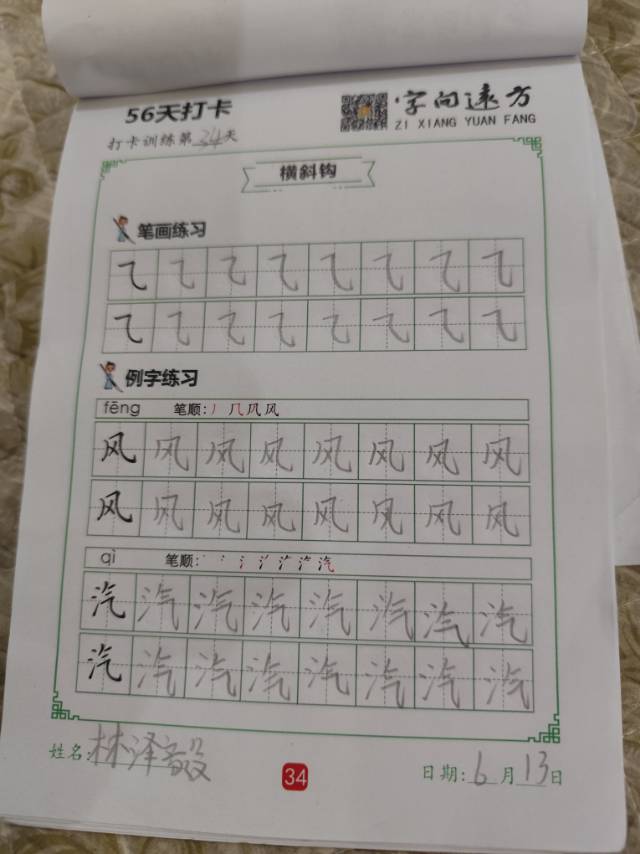 56天打卡
字向远方
ZI XIANG YUAN FANG
打卡训练第34天
横斜钩
笔画练习
⺄ ⺄ ⺄ ⺄ ⺄ ⺄ ⺄ ⺄
⺄ ⺄ ⺄ ⺄ ⺄ ⺄ ⺄ ⺄
例字练习
fēng 笔顺: 丿 几 凤 风
风 风 风 风 风 风 风 风
风 风 风 风 风 风 风 风
qì 笔顺:
汽 汽 汽 汽 汽 汽 汽 汽
汽 汽 汽 汽 汽 汽 汽 汽
姓名: 林泽毅
34
日期: 6月13日